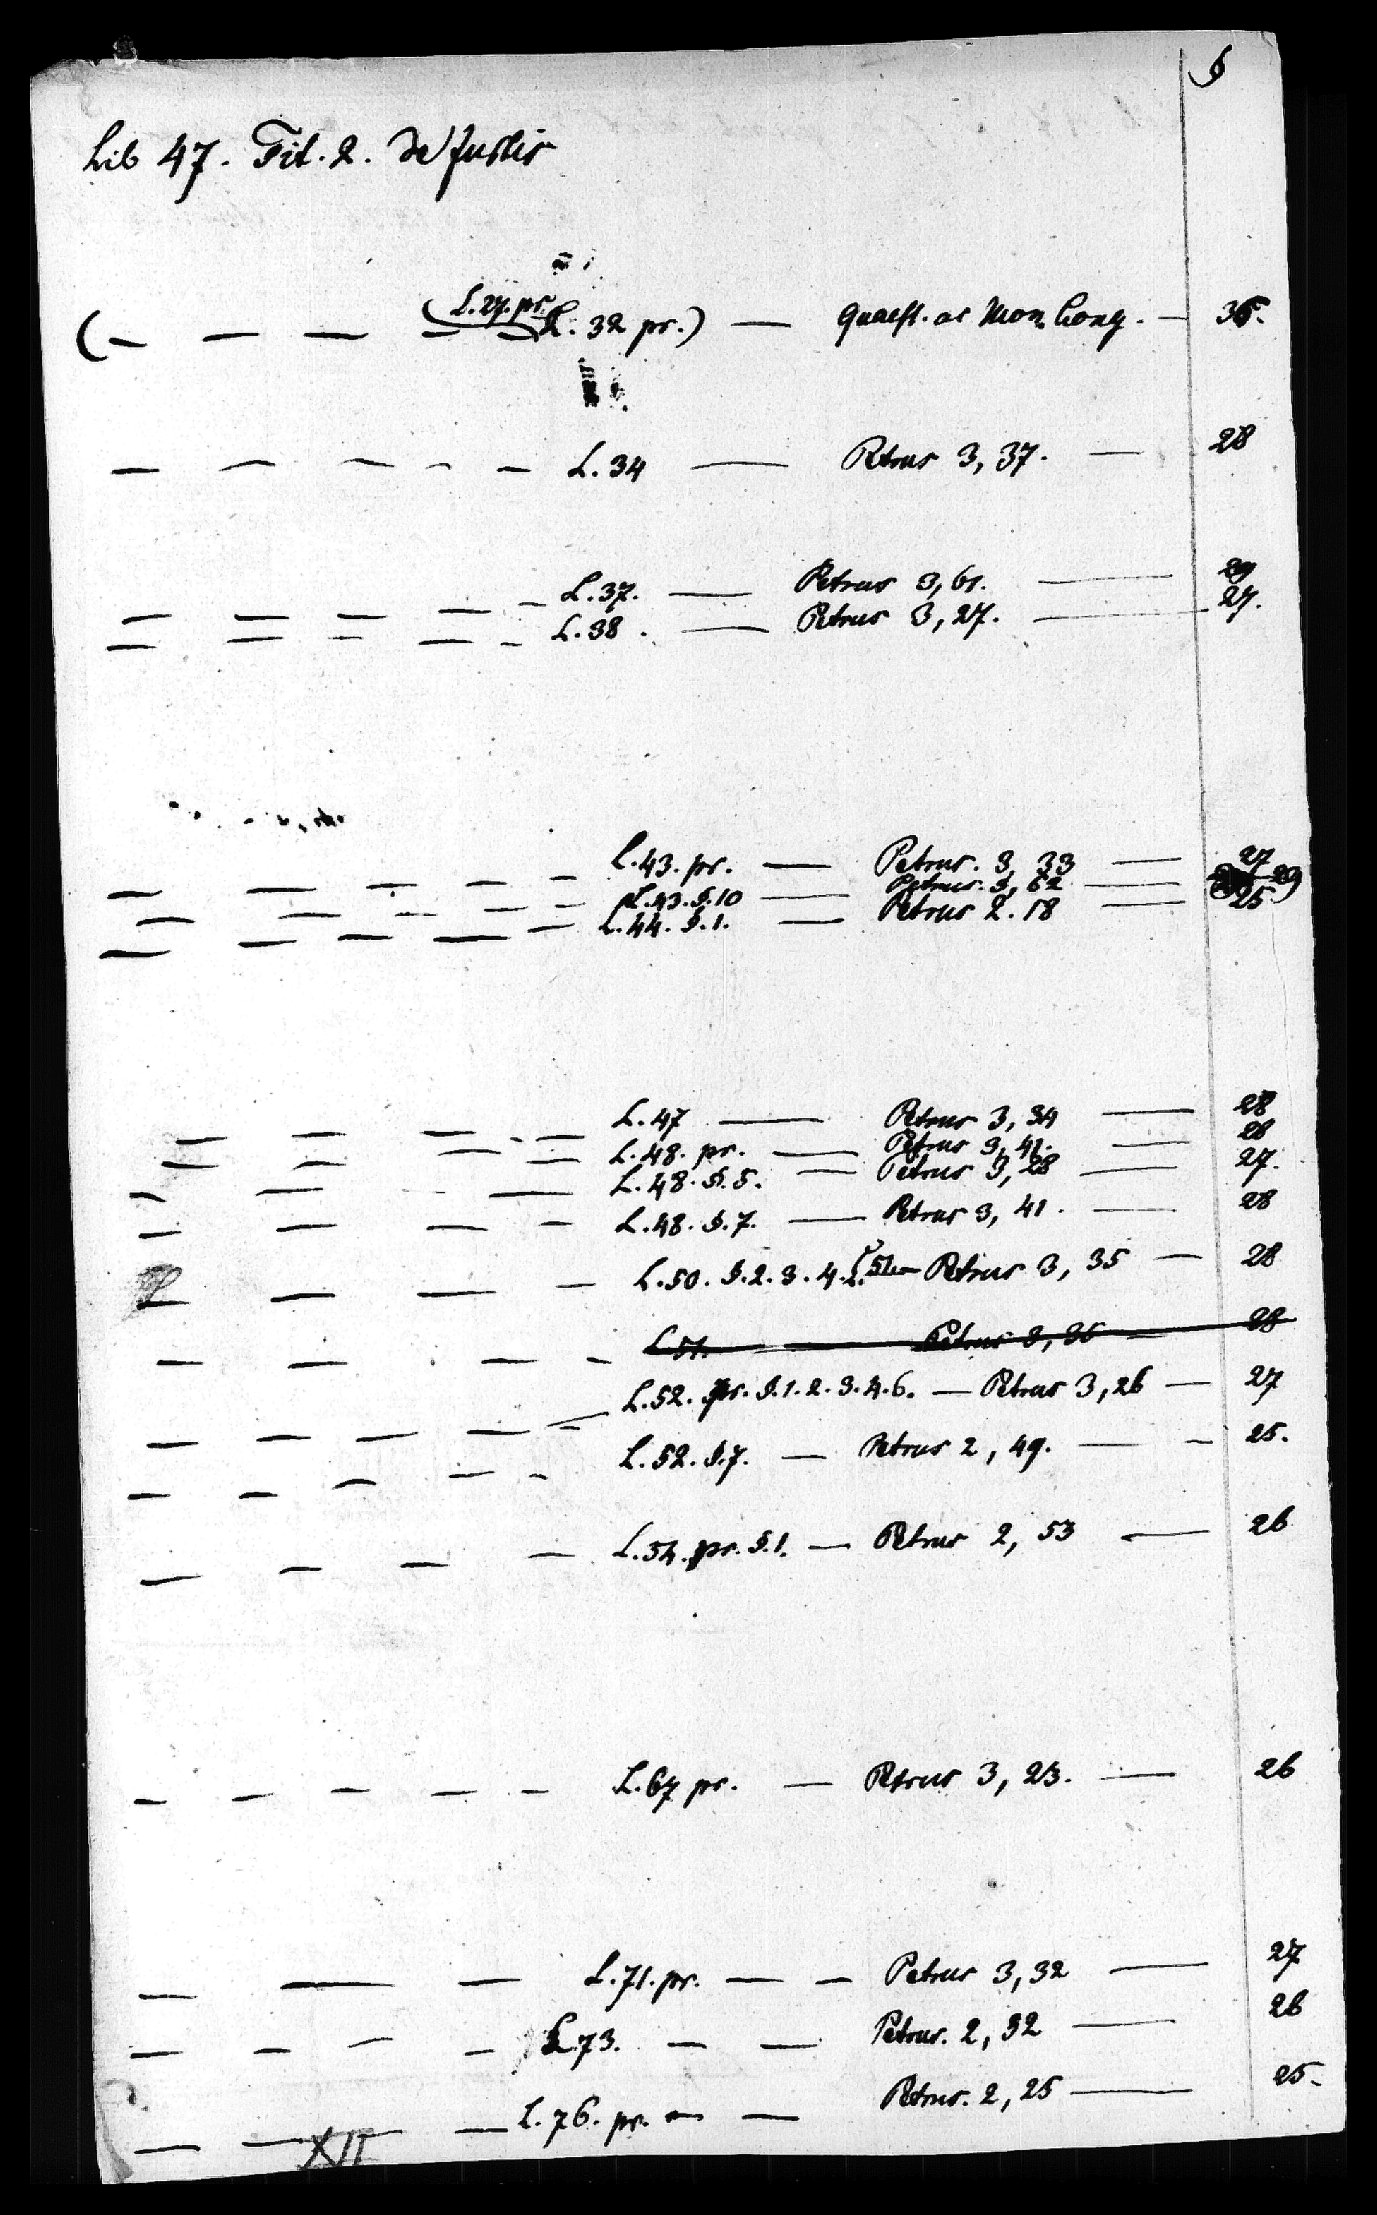 6
Lib 47. Tit. 2. De furtis
(— — — — (L.27. pr.) L. 32 pr.) — Quaest. ac Mon. — 36.
— — — — — L. 34 — Petrus 3, 37. — 28
— — — — — L. 37. — Petrus 3, 61. — 29
— — — — — L. 38. — Petrus 3, 27. — 27.
— — — — — L. 43. pr. — Petrus. 3, 33 — 27
— — — — — L. 43. §. 10 — Petrus. 3, 62 — 29
— — — — — L. 44. §. 1. — Petrus 2. 18 — 25
— — — — — L. 47 — Petrus 3, 34 — 28
— — — — L. 48. pr. — Petrus 3, 41. — 28
— — — L. 48. §. 5. — Petrus 3, 28 — 27.
— — — — L. 48. §. 7. — Petrus 3, 41. — 28
— — — — L. 50. §. 2. 3. 4. L. 51. — Petrus 3, 35 — 28
— — — — L. 51. — Petrus 3, 36 — 28
— — — — — L. 52. pr. §. 1. 2. 3. 4. 6. — Petrus 3, 26 — 27
— — — — — L. 52. §. 7. — Petrus 2, 49. — — 25.
— — — — L. 54. pr. §. 1. — Petrus 2, 53 — 26
— — — — — L. 67 pr. — Petrus 3, 23. — 26
— — — L. 71. pr. — — Petrus 3, 32 — 27
— — — — L. 73. — — Petrus. 2, 32 — 26
— — — L. 76. pr. — — Petrus. 2, 25 — 25.
XII